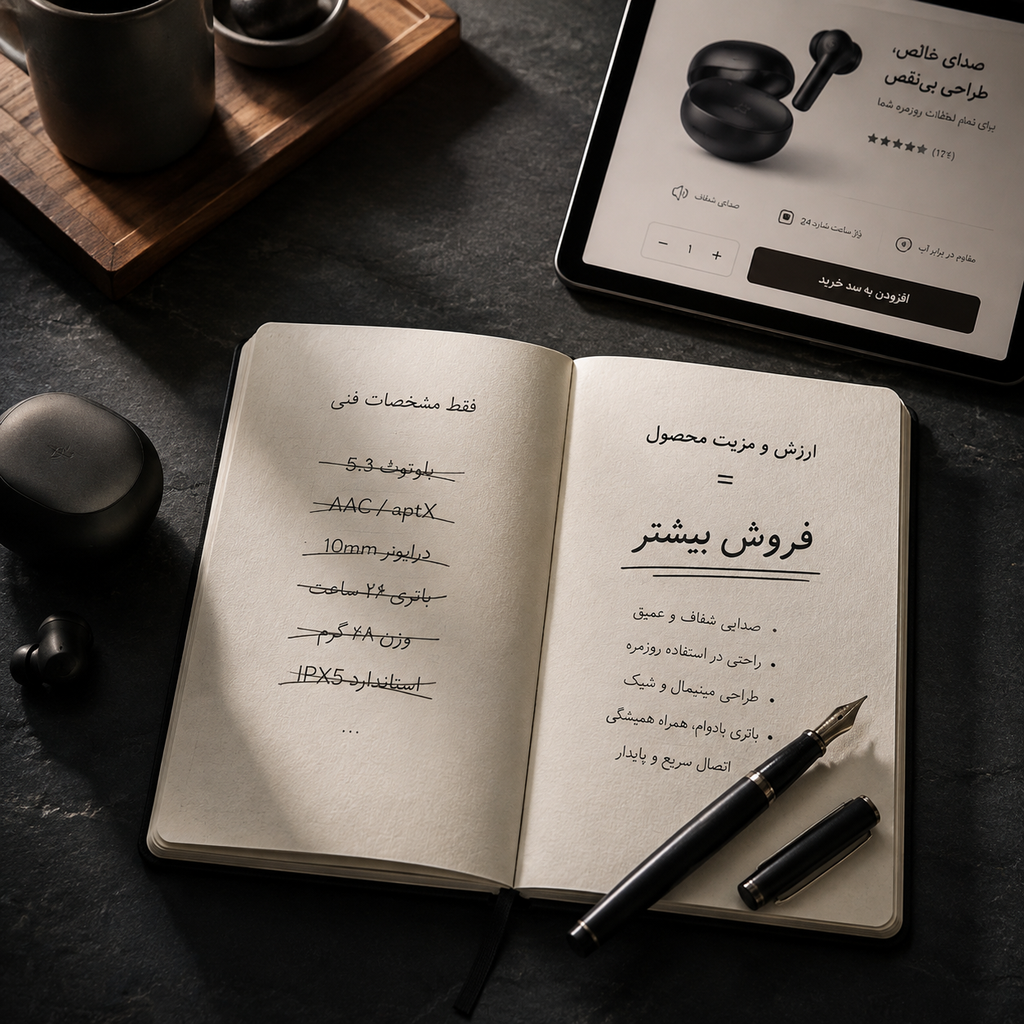 صدای خالص،
طراحی بی‌نقص
برای تمام لحظات روزمره شما
صدای شفاف
24
مقاوم در برابر آب
− ۱ +
افزودن به سبد خرید
فقط مشخصات فنی
بلوتوث 5.3
AAC / aptX
درایور 10mm
باتری ۲۴ ساعت
وزن ۴۸ گرم
استاندارد IPX5
...
ارزش و مزیت محصول
=
فروش بیشتر
• صدایی شفاف و عمیق
• راحتی در استفاده روزمره
• طراحی مینیمال و شیک
• باتری بادوام، همراه همیشگی
اتصال سریع و پایدار